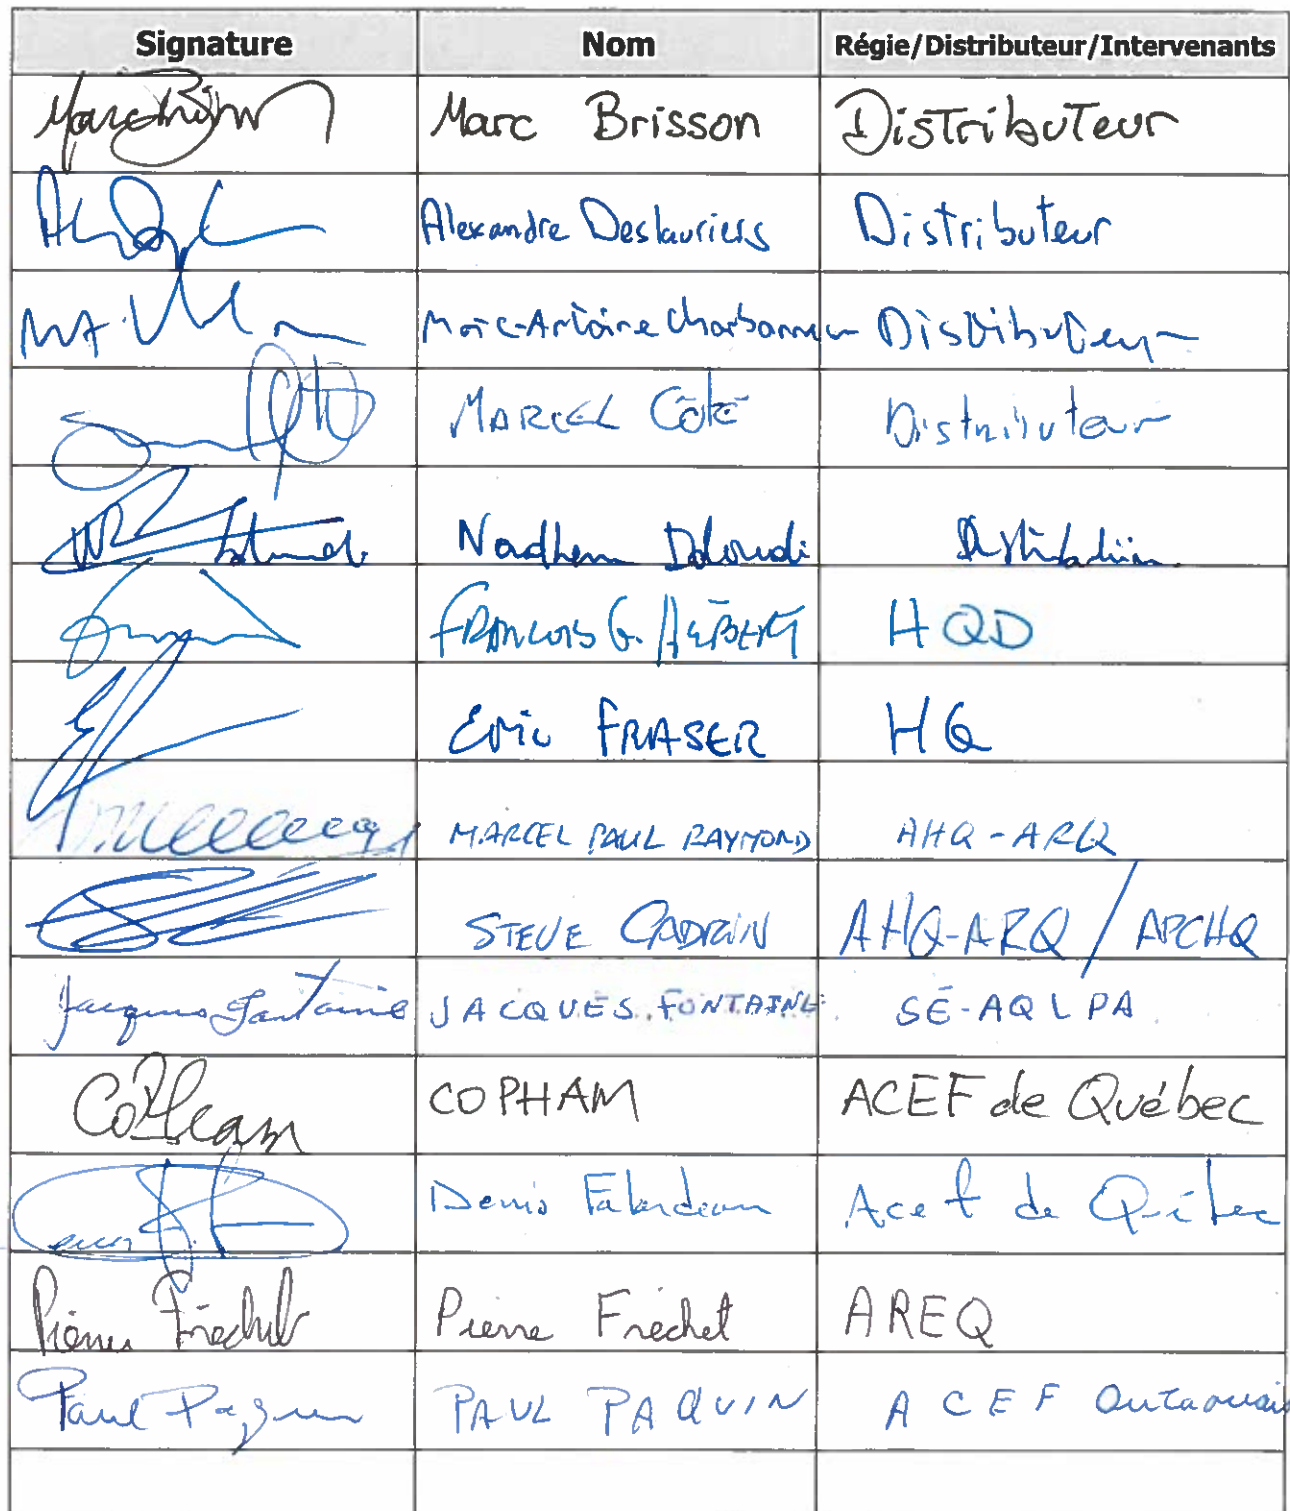 Signature Nom Régie/Distributeur/Intervenants
Marc Brisson Distributeur
Alexandre Deslauriers Distributeur
Marc-Antoine Charbonneau Distributeur
MARCEL Côté Distributeur
Nadhem Distribution
FRANCOIS G. HÉBERT HQD
Eric FRASER HQ
MARCEL PAUL RAYMOND AHQ-ARQ
STEVE CADRIN AHQ-ARQ / APCHQ
Jacques Fontaine JACQUES FONTAINE SÉ-AQLPA
CoPham COPHAM ACEF de Québec
Denis Falardeau Acef de Québec
Pierre Fréchet Pierre Frechet AREQ
Paul Paquin PAUL PAQUIN ACEF Outaouais